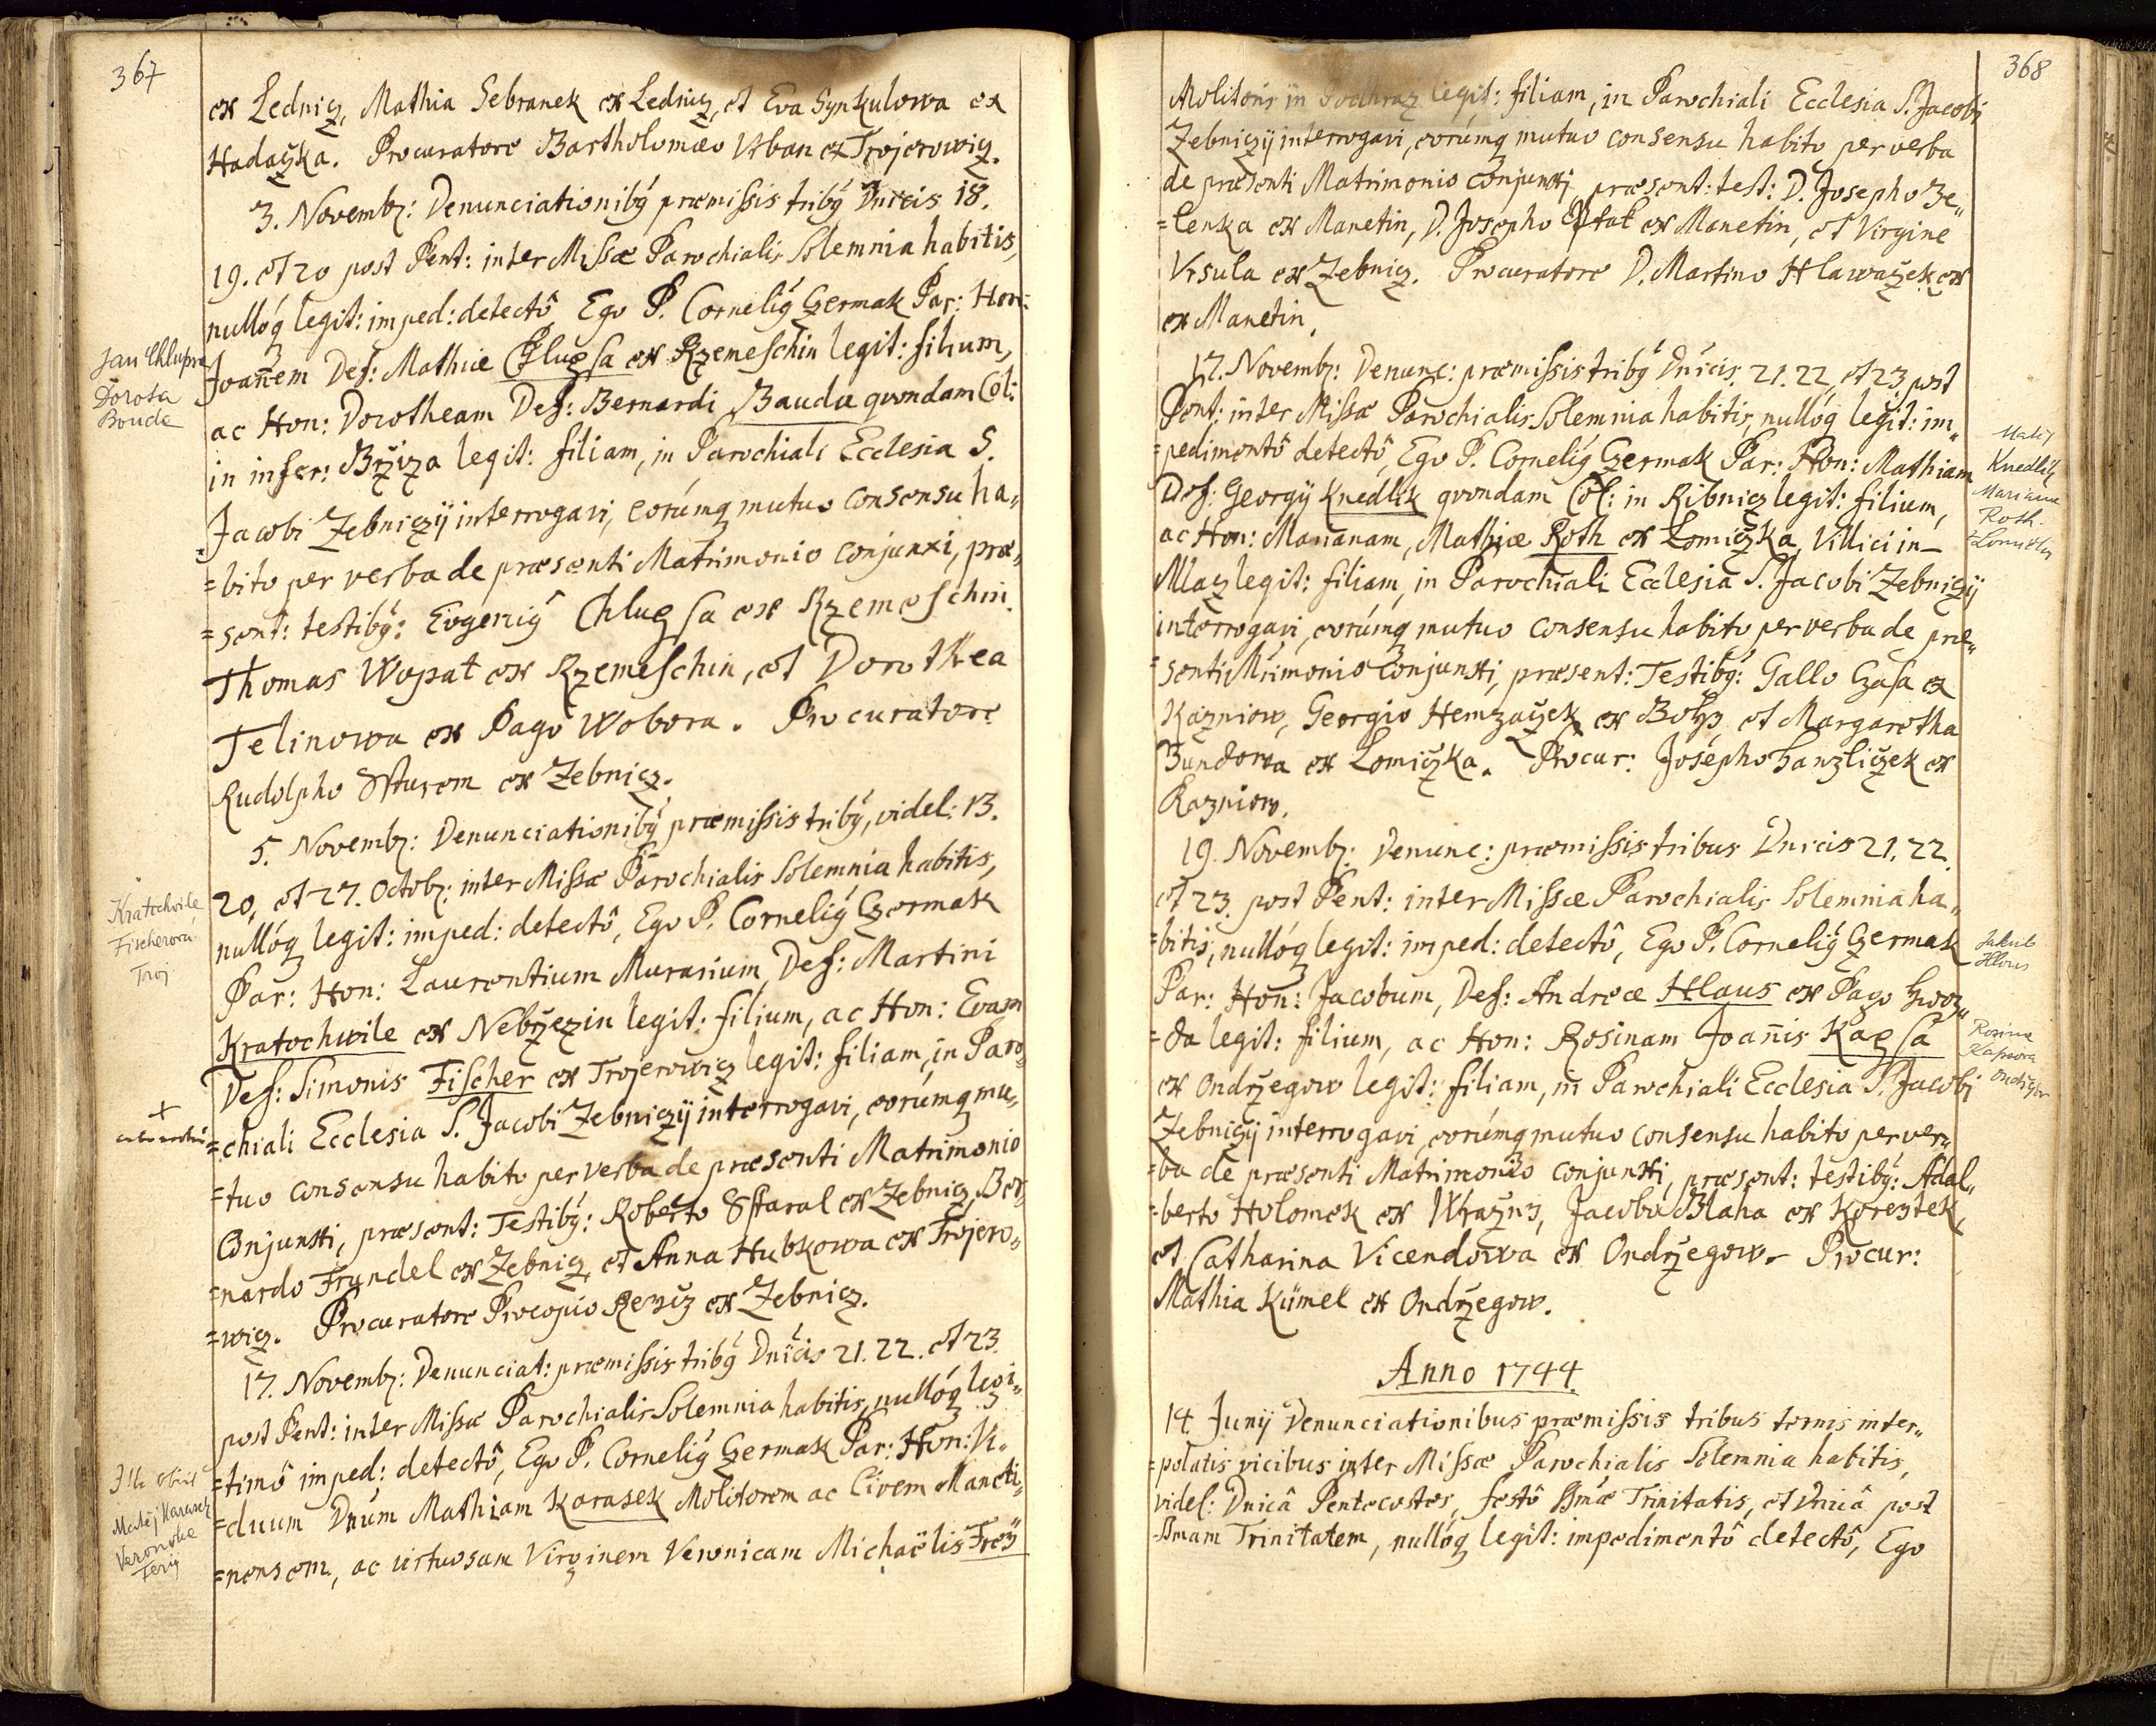 367
ex Lednicz, Mathia Sebranek ex Lednicz, et Eva Synkulowa ex
Hadačzka. Procuratore Bartholomæo Urban ex Trojerowicz.
3. Novemb: Denunciationibq præmissis tribq Dnicis 18.
19. et 20 post Pent: inter Missæ Parochialis Solemnia habitis,
nullóq legit: imped: detectô Ego P. Cornelig Czermak Par: Hon:
Joannem Def: Mathiæ Chlupsa ex Rzemeschin legit: filium,
ac Hon: Dorotheam Def: Bernardi Bauda quondam Col:
in infer: Brziza legit: filiam, in Parochiali Ecclesia S.
Jacobi Zebniczij interrogavi, eorúmq mutuo consensu ha„
=bito per verba de præsenti Matrimonio conjunxi, præ„
=sent: testibq: Eugenig Chlupsa ex Rzemeschin
Thomas Wopat ex Rzemeschin, et Dorothea
Telinowa ex Pago Wobora. Procuratore
Rudolpho Ssturem ex Zebnicz.
Jan Chlupsa
Dorota
Bouda
5. Novemb: Denunciationibq præmissis tribq, videl: 13.
20, et 27. Octob: inter Missæ Parochialis Solemnia habitis,
nullóq legit: imped: detectô, Ego P. Cornelig Czermak
Par: Hon: Laurentium Murarium, Def: Martini
Kratochwile ex Nebrzezin legit: filium, ac Hon: Evam
Def: Simonis Fischer ex Trojerowicz legit: filiam, in Paro„
=chiali Ecclesia S. Jacobi Zebniczij interrogavi, eorúmq mu„
=tuo consensu habito per verba de præsenti Matrimonio
Conjunxi, præsent: Testibq: Roberto Sstaral ex Zebnicz, Ber„
=nardo Fryndel ex Zebnicz, et Anna Hubkowa ex Trojero„
=wicz. Procuratore Procopio ex Zebnicz.
Kratochvile
Fischerova
Troj
17. Novemb: Denunciat: præmissis tribq Dnicis 21. 22. et 23.
post Pent: inter Missæ Parochialis Solemnia habitis, nullóq legi„
=timô imped: detectô, Ego P. Cornelig Czermak Par: Hon: Vi„
=duum Dnum Mathiam Karasek Molitorem ac Civem Maneti„
=nensem, ac virtuosam Virginem Veronicam Michaëlis Freÿ
obiit
Matěj Karasek
Veronika
368
Molitoris in legit: filiam, in Parochiali Ecclesia S. Jacobi
Zebniczij interrogavi, eorúmq mutuo consensu habito per verba
de præsenti Matrimonio conjunxi præsent: test: D. Josepho Ze„
=lenka ex Manetin, D. Josepho Ptak ex Manetin, et Virgine
Ursula ex Zebnicz. Procuratore D. Martino Hlawaczek ex
ex Manetin.
17. Novemb: Denunc: præmissis tribq Dnicis 21. 22 et 23 post
Pent: inter Missæ Parochialis Solemnia habitis, nullóq legit: im„
=pedimentô detectô, Ego P. Cornelig Czermak Par: Hon: Mathiam
Def: Georgij Knedlik quondam Col: in Ribnicz legit: filium,
ac Hon: Marianam, Mathiæ Roth ex Lomiczka, Villici in
Mlaz legit: filiam, in Parochiali Ecclesia S. Jacobi Zebniczij
interrogavi, eorúmq mutuo consensu habito per verba de præ„
=senti Mrimonio Conjunxi, præsent: Testibq: Gallo Czasa ex
Kazniow, Georgio Hemzaczek ex et Margaretha
ex Lomiczka. Procur: Josepho Hanzliczek ex
Kazniow.
Matěj
Knedlik
Mariana
Roth
19. Novemb: Denunc: præmissis tribus Dnicis 21. 22.
et 23. post Pent: inter Missæ Parochialis Solemnia ha„
=bitis, nullóq legit: imped: detectô, Ego P. Cornelig Czermak
Par: Hon: Jacobum, Def: Andreæ Hlaus ex Pago Hwoz„
=da legit: filium, ac Hon: Rosinam Joannis Kapsa
ex Ondrzegow legit: filiam, in Parochiali Ecclesia S. Jacobi
Zebniczij interrogavi, eorúmq mutuo consensu habito per ver„
=ba de præsenti Matrimonio conjunxi, præsent: testibq: Adal„
=berto Holomek ex Wrazny, Jacobo Blaha ex Korestek,
et Catharina Vicendowa ex Ondrzegow. Procur:
Mathia Kümel ex Ondrzegow.
Jakub
Hlous
Rosina
Kapsova
Anno 1744.
14 Junij Denunciationibus præmissis tribus ternis inter„
=polatis vicibus inter Missæ Parochialis Solemnia habitis,
videl: Dnicâ Pentecostes, festô SSmæ Trinitatis, et Dnicâ post
SSmam Trinitatem, nullóq legit: impedimentô detectô, Ego